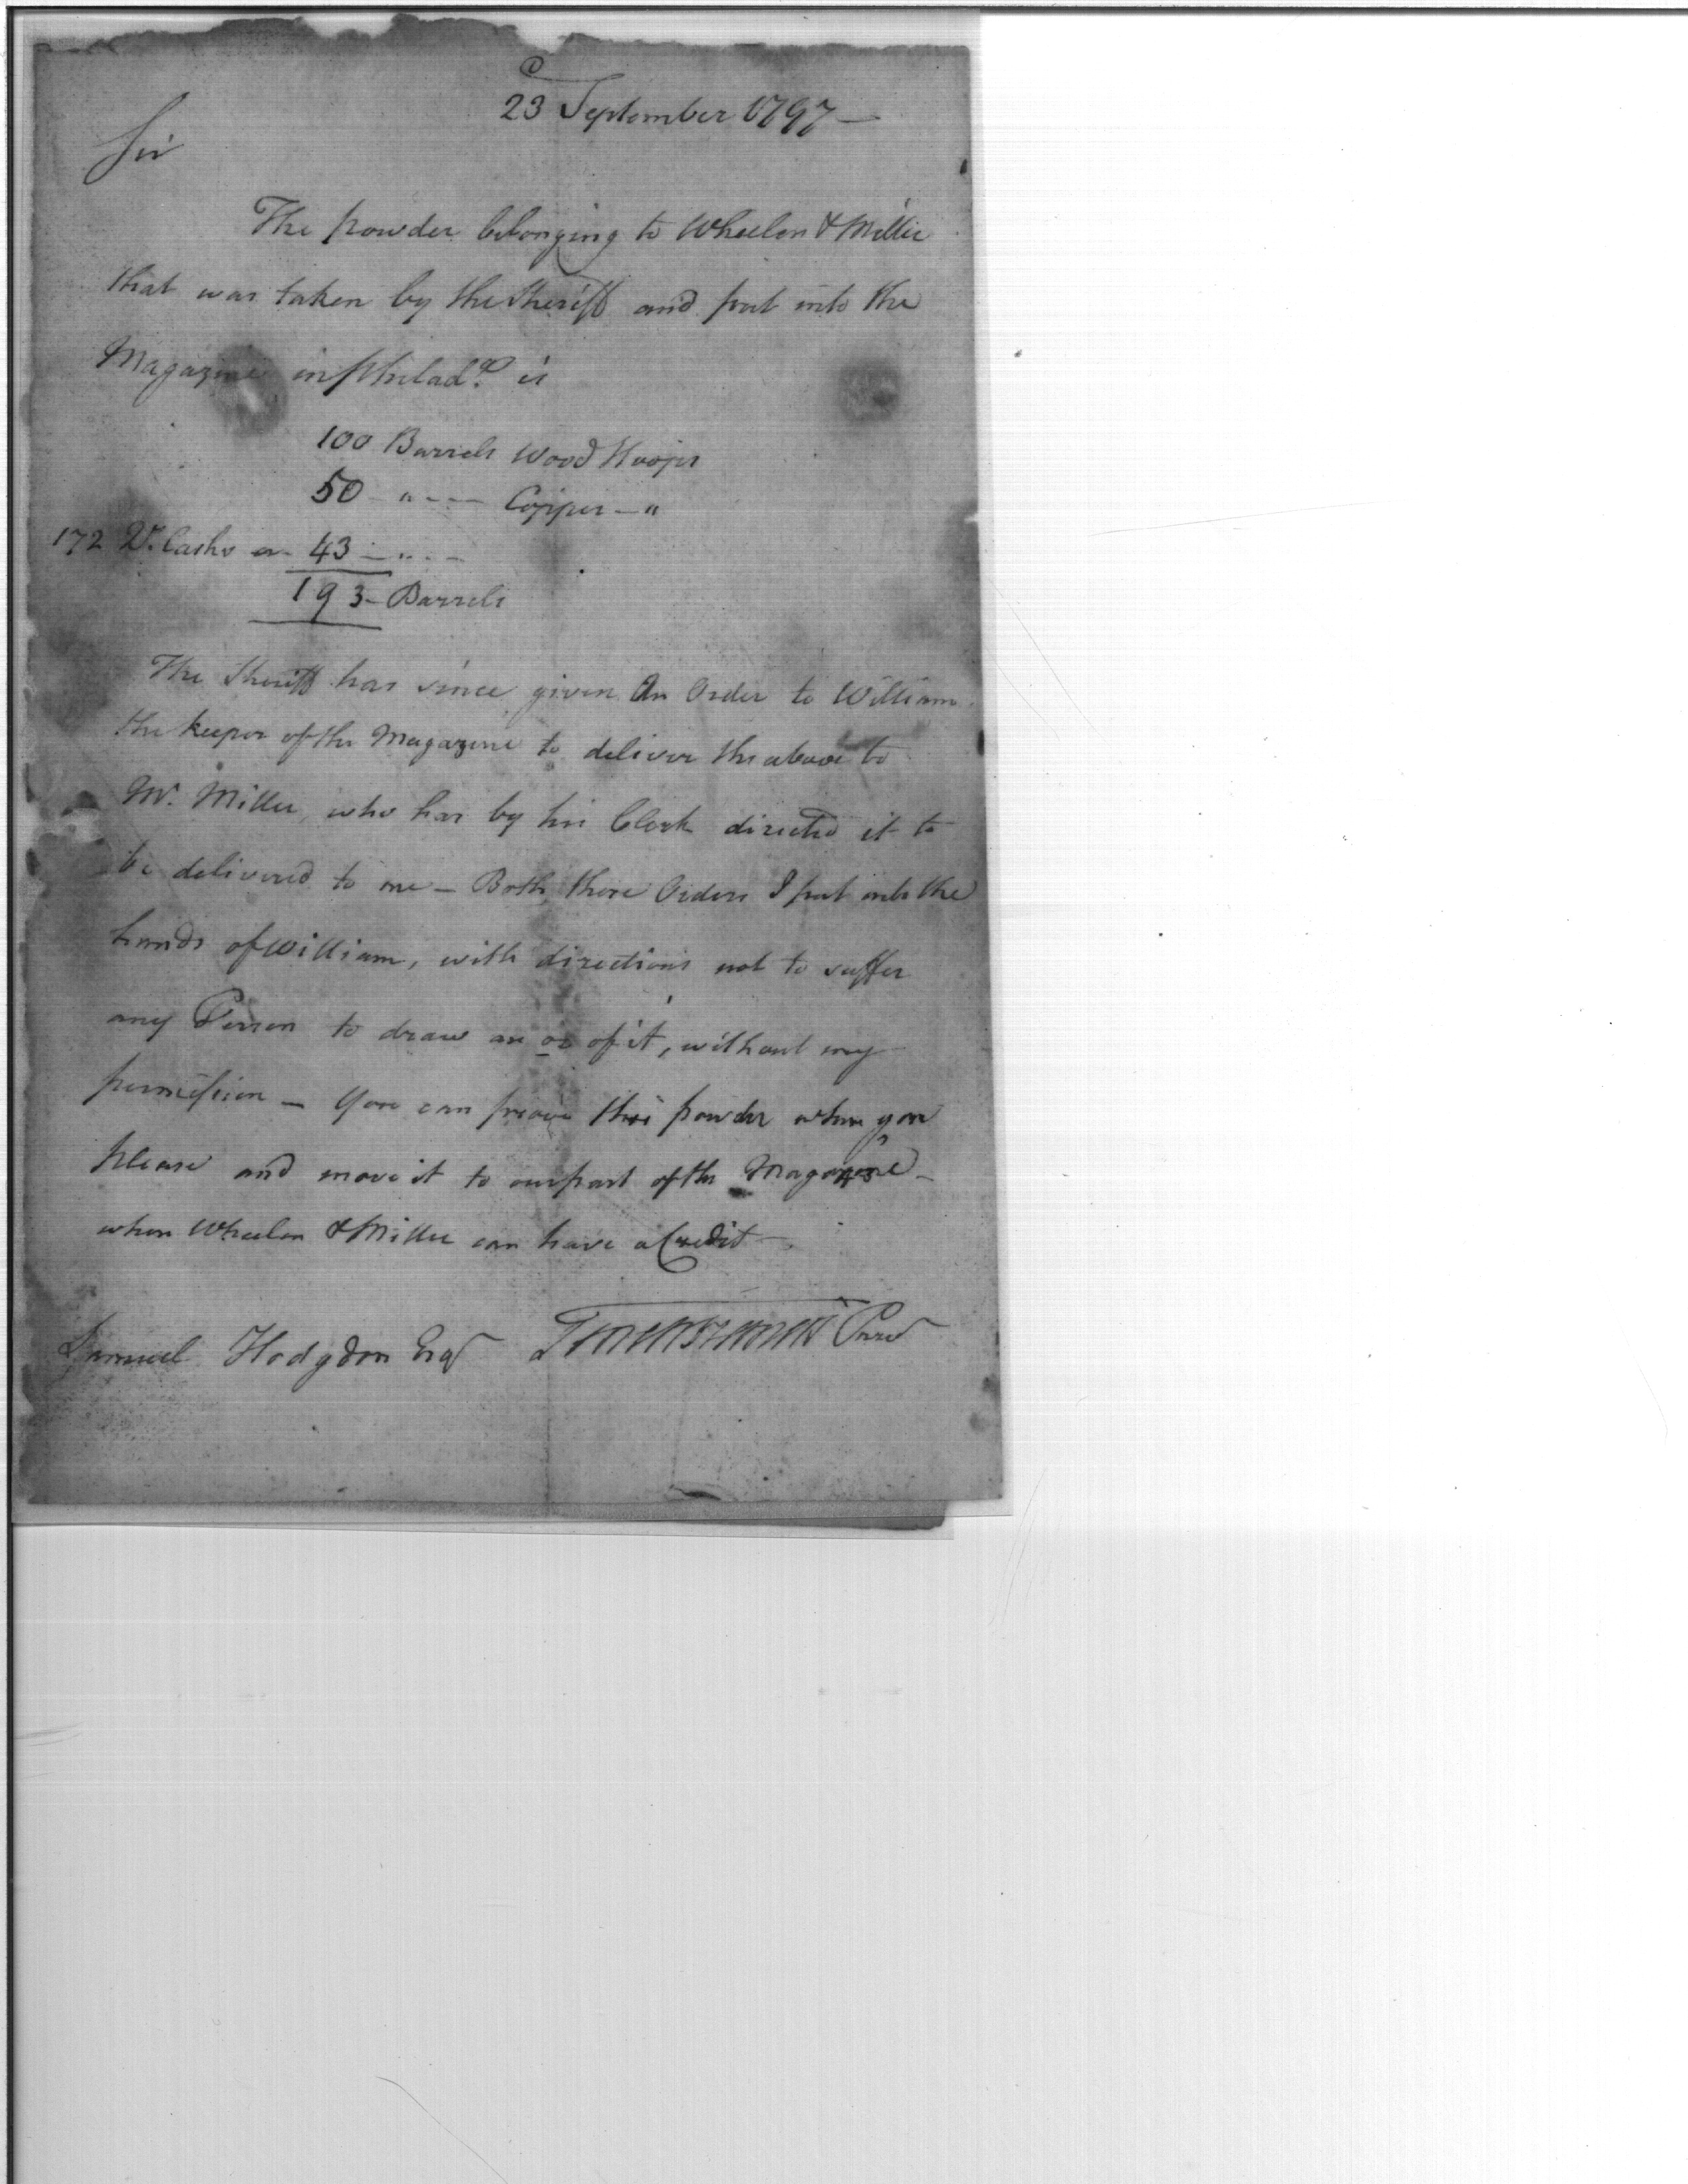 23 September 1797 —
Sir
The powder belonging to Wheelen & Miller
that was taken by the Sheriff and put into the
Magazine in Philada. is
100 Barrels Wood Hoops
50 - " - - - Copper - "
172 Qr. Casks or 43 - " - -
193 - Barrels
The Sheriff has since given An Order to William
the keeper of the Magazine to deliver the above to
Mr. Miller, who has by his Clerk directed it to
be delivered to me — Both these Orders I put into the
hands of William, with directions not to suffer
any Person to draw an oz of it, without my
permission — You can prove this powder when you
please and move it to our part of the Magazine —
when Wheelen & Miller can have a Credit —
Samuel Hodgdon Esqr